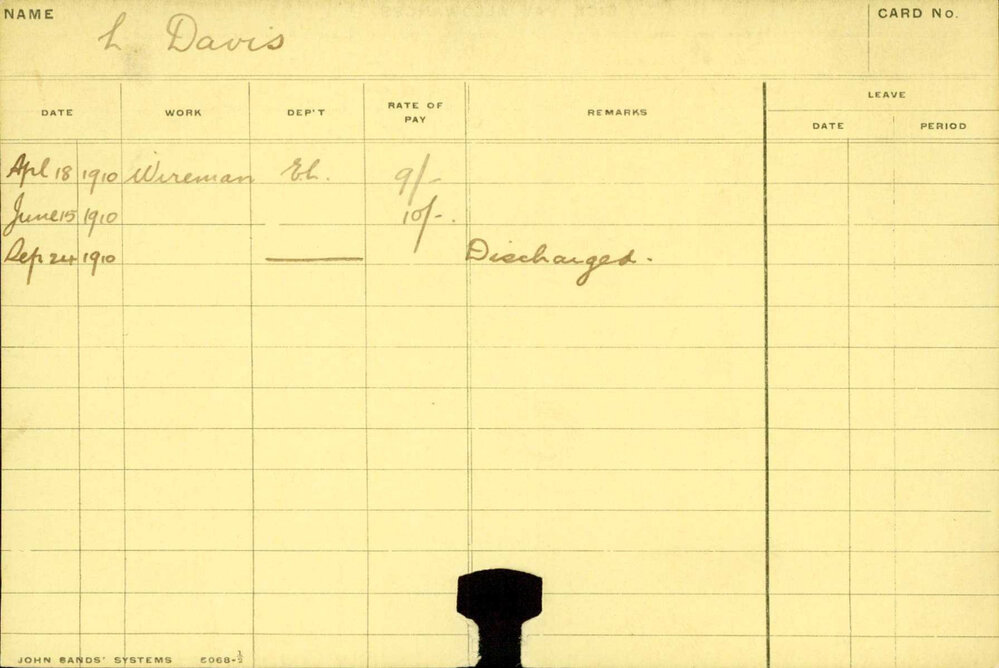 NAME L Davis CARD No.
DATE WORK DEP'T RATE OF PAY REMARKS LEAVE
DATE PERIOD
Apl 18 1910 Wireman El. 9/-
June 15 1910 10/-.
Sep 24 1910 — Discharged.
JOHN SANDS' SYSTEMS 6068-½